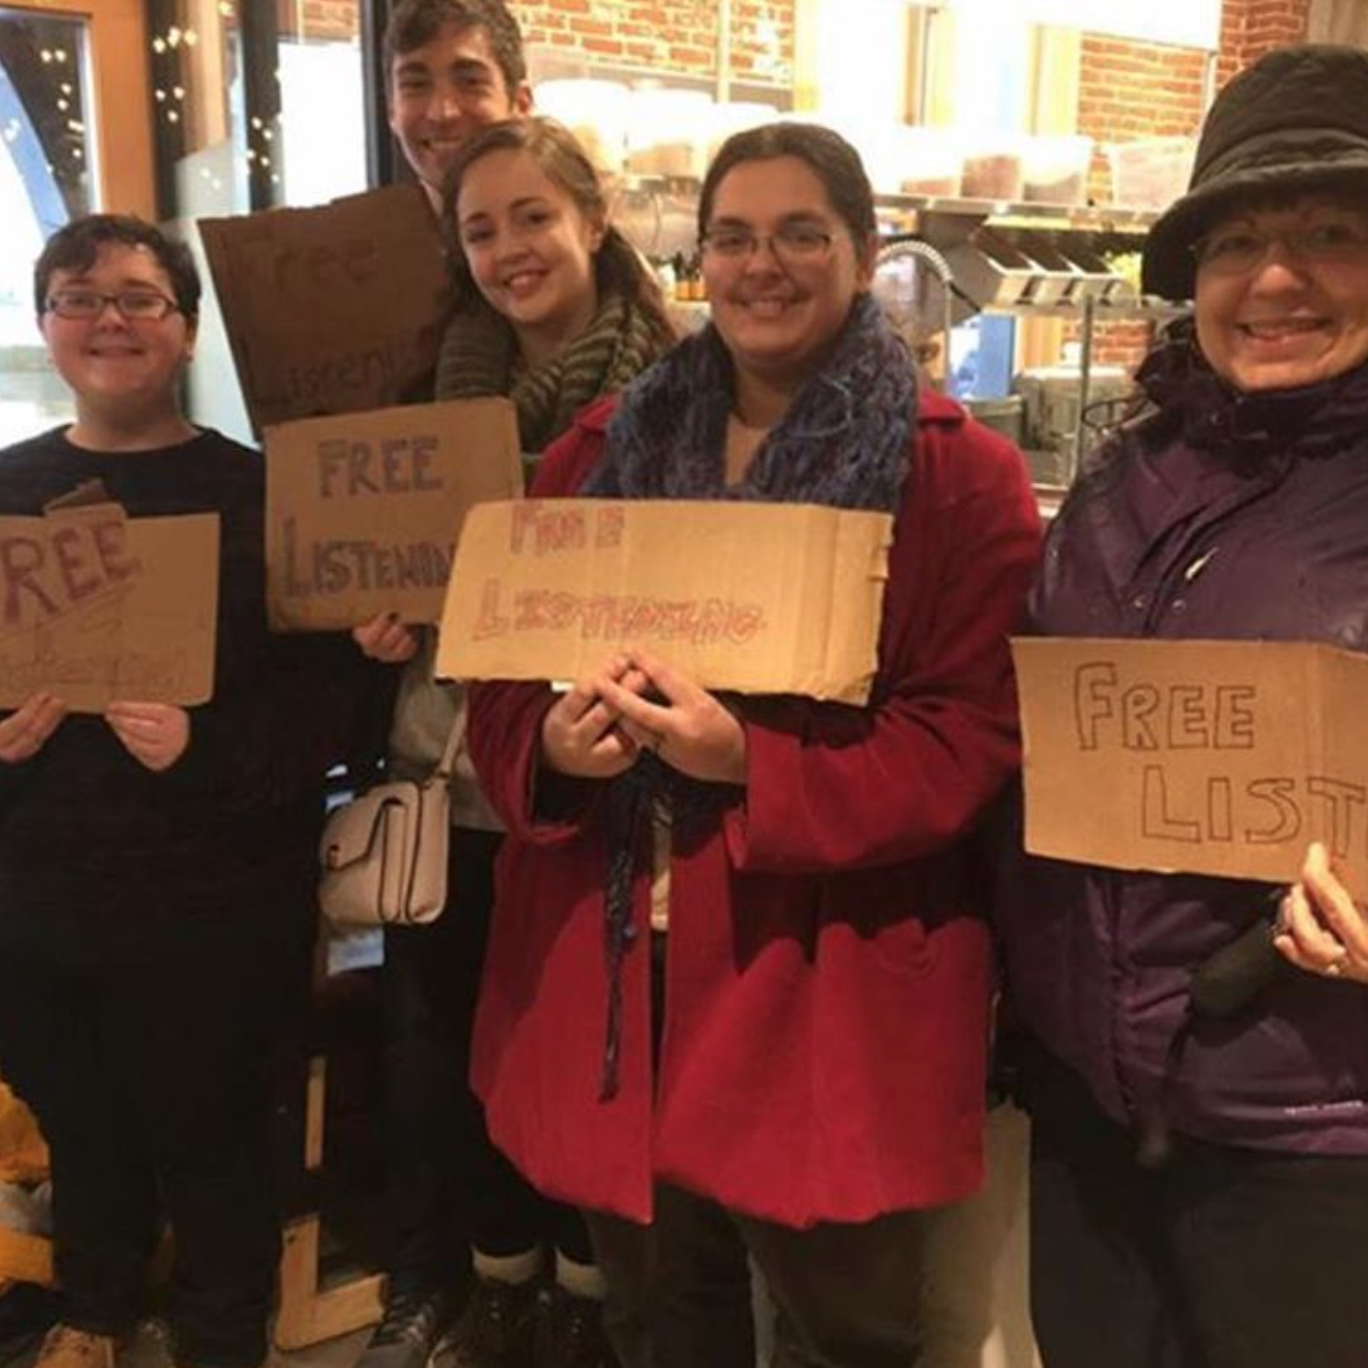 FREE
Free
Listening
FREE
LISTENIN
FREE
LISTENING
FREE
LIST